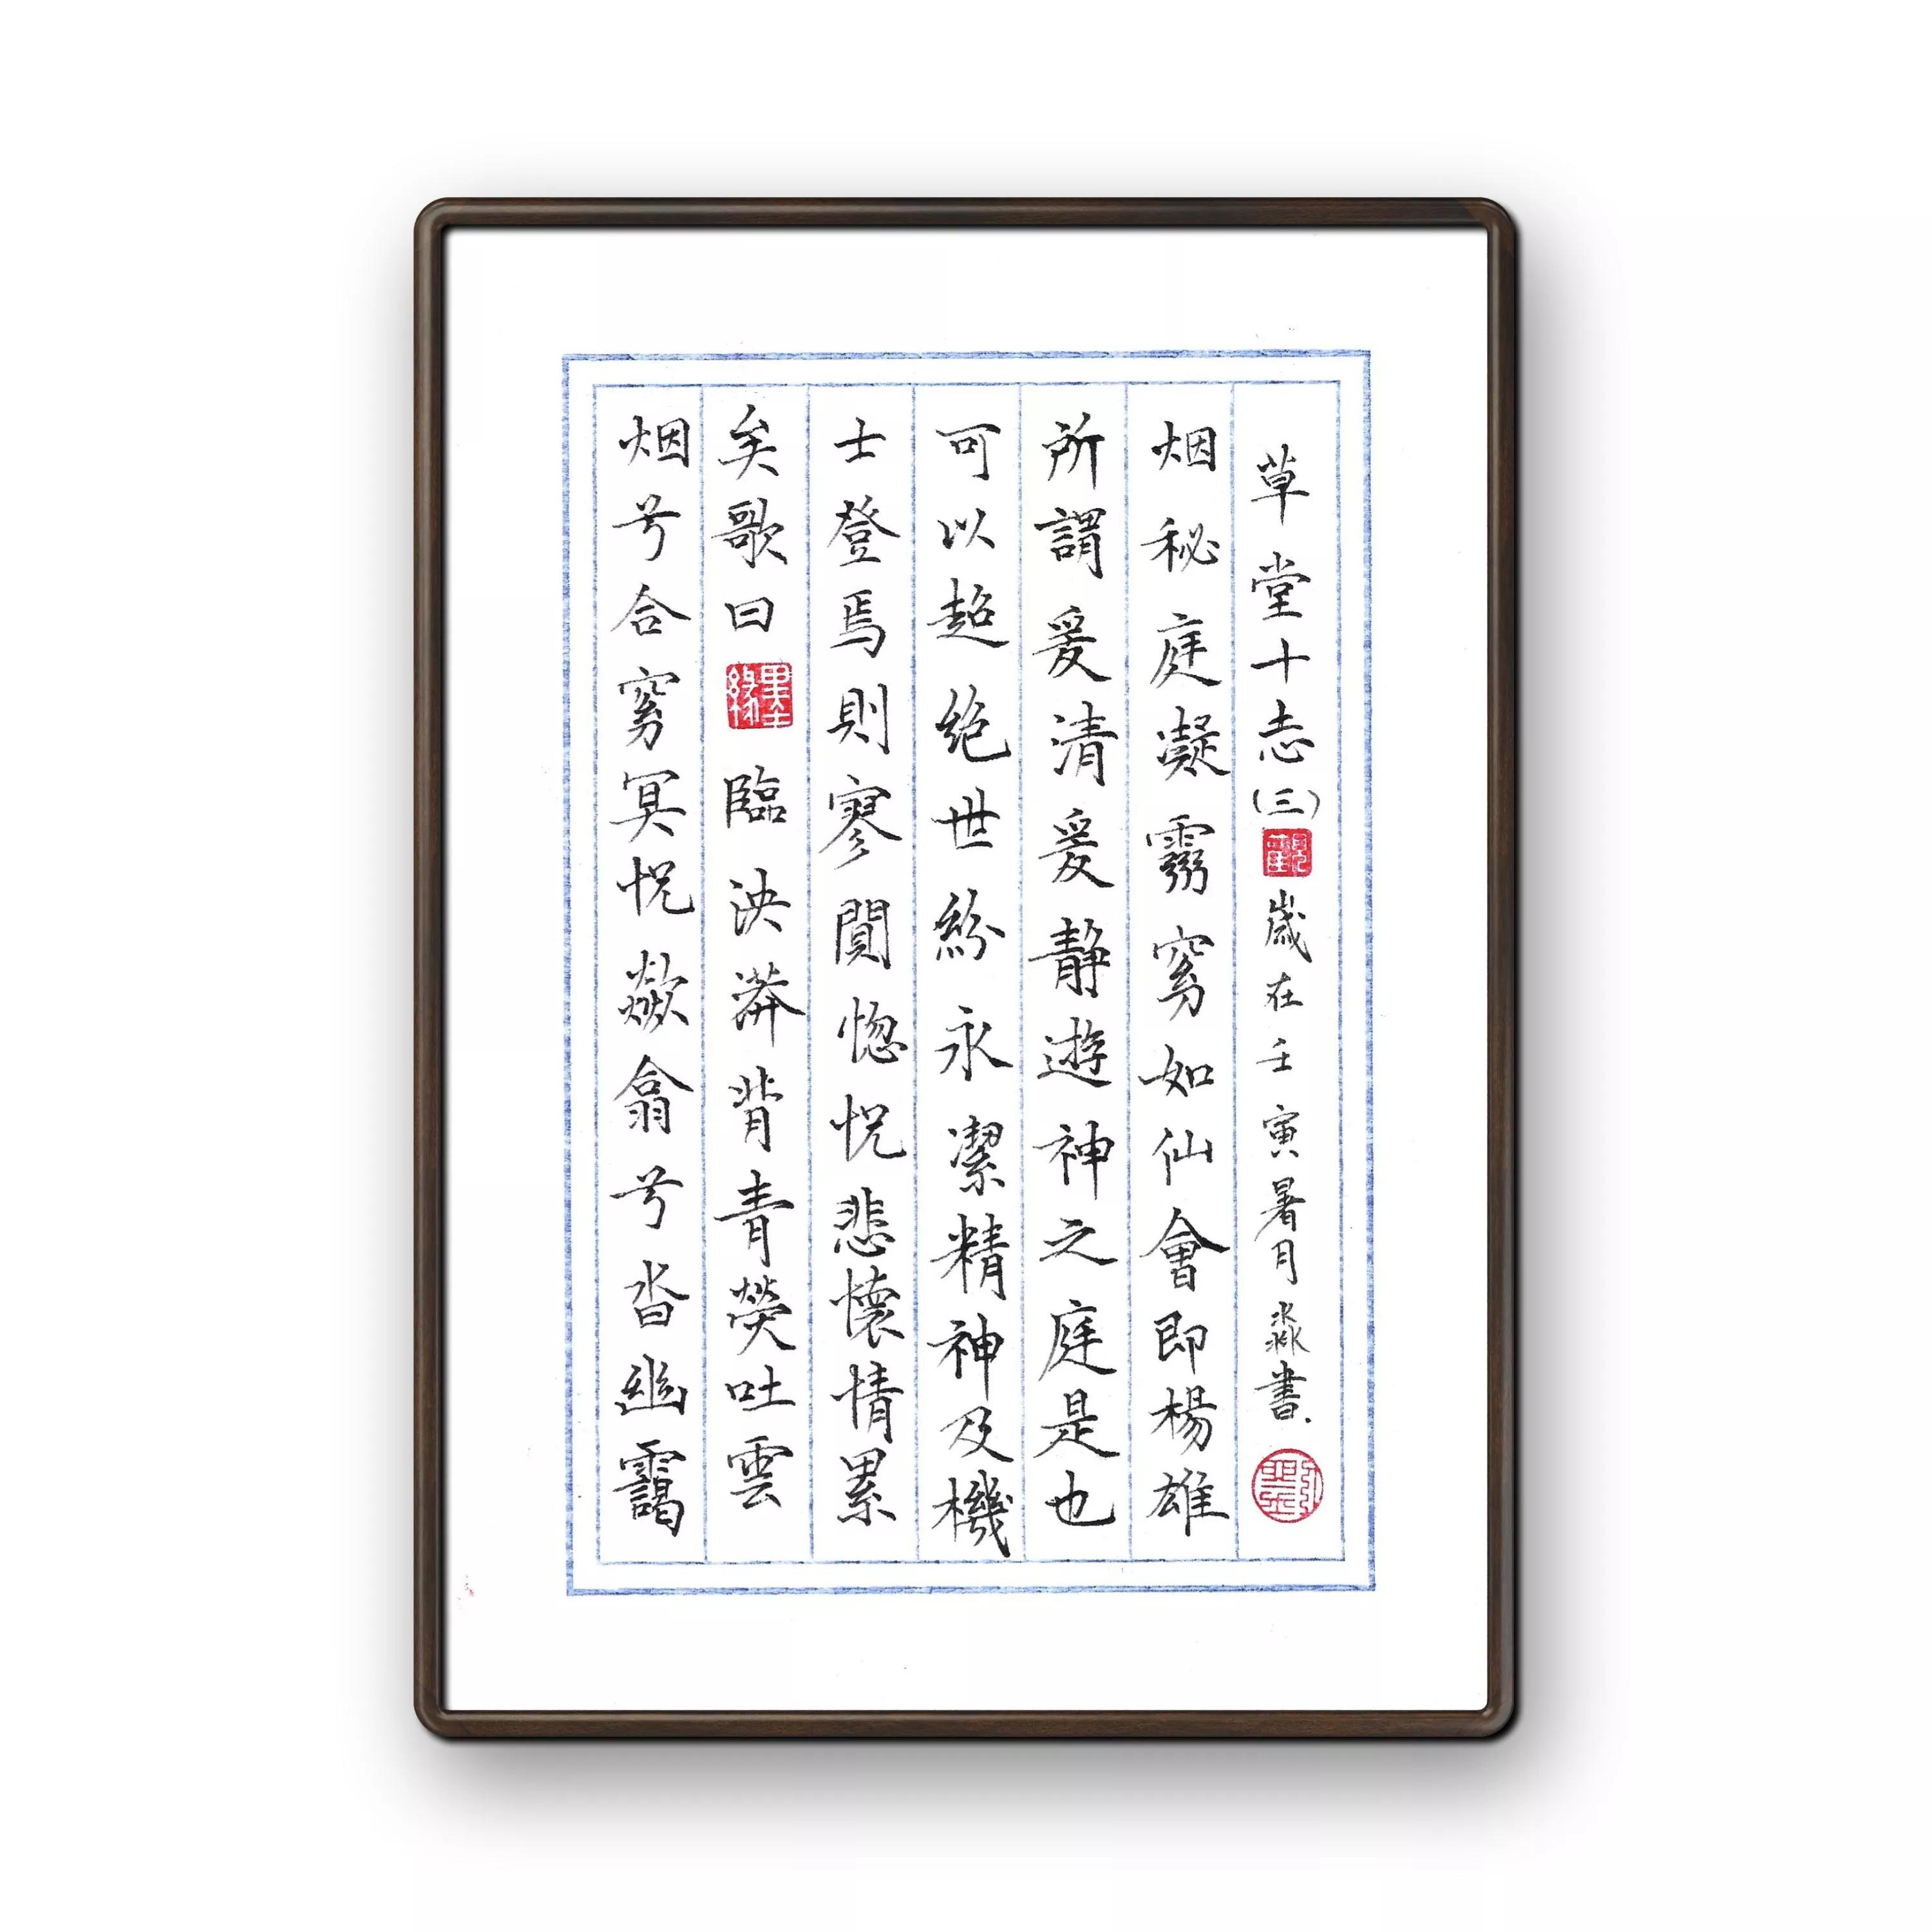 草堂十志(三) 觀 歲在壬寅暑月淼書.
烟秘庭凝窈如仙會即楊雄
所謂爰清爰靜遊神之庭是也
可以超絶世紛永潔精神及機
士登焉則寥闃惚怳悲懷情累
矣歌曰 墨緣 臨泱漭背青熒吐雲
烟兮合窈冥怳欻翕兮沓幽靄